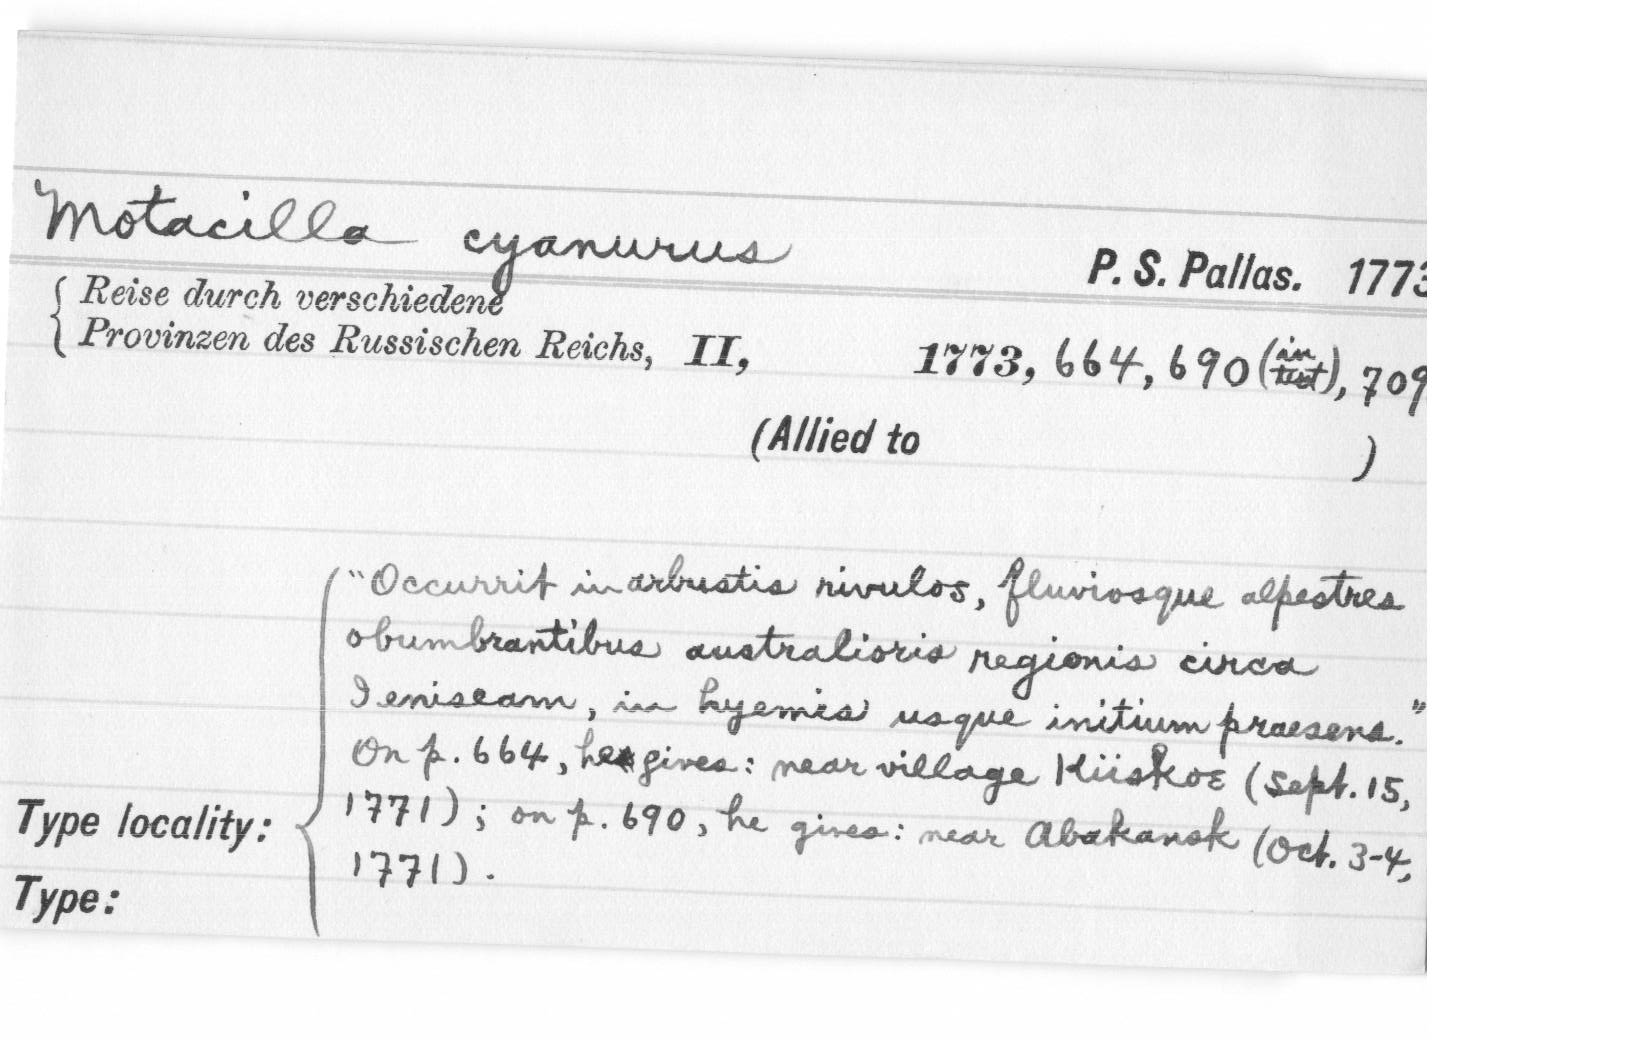 Motacilla cyanurus
P. S. Pallas. 1773
{ Reise durch verschiedene
Provinzen des Russischen Reichs, II, 1773, 664, 690 (in text), 709
(Allied to )
"Occurrit in arbustis rivulos, fluviosque alpestres
obumbrantibus australioris regionis circa
Jeniseam, in hyemis usque initium praesens."
On p. 664, he gives: near village Kiiskoe (Sept. 15,
1771); on p. 690, he gives: near Abakansk (Oct. 3-4,
1771).
Type locality:
Type: